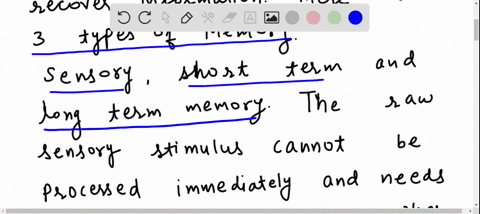 recover
3 types of Memory.
Sensory, short term and
long term memory. The raw
sensory stimulus cannot be
processed immediately and needs